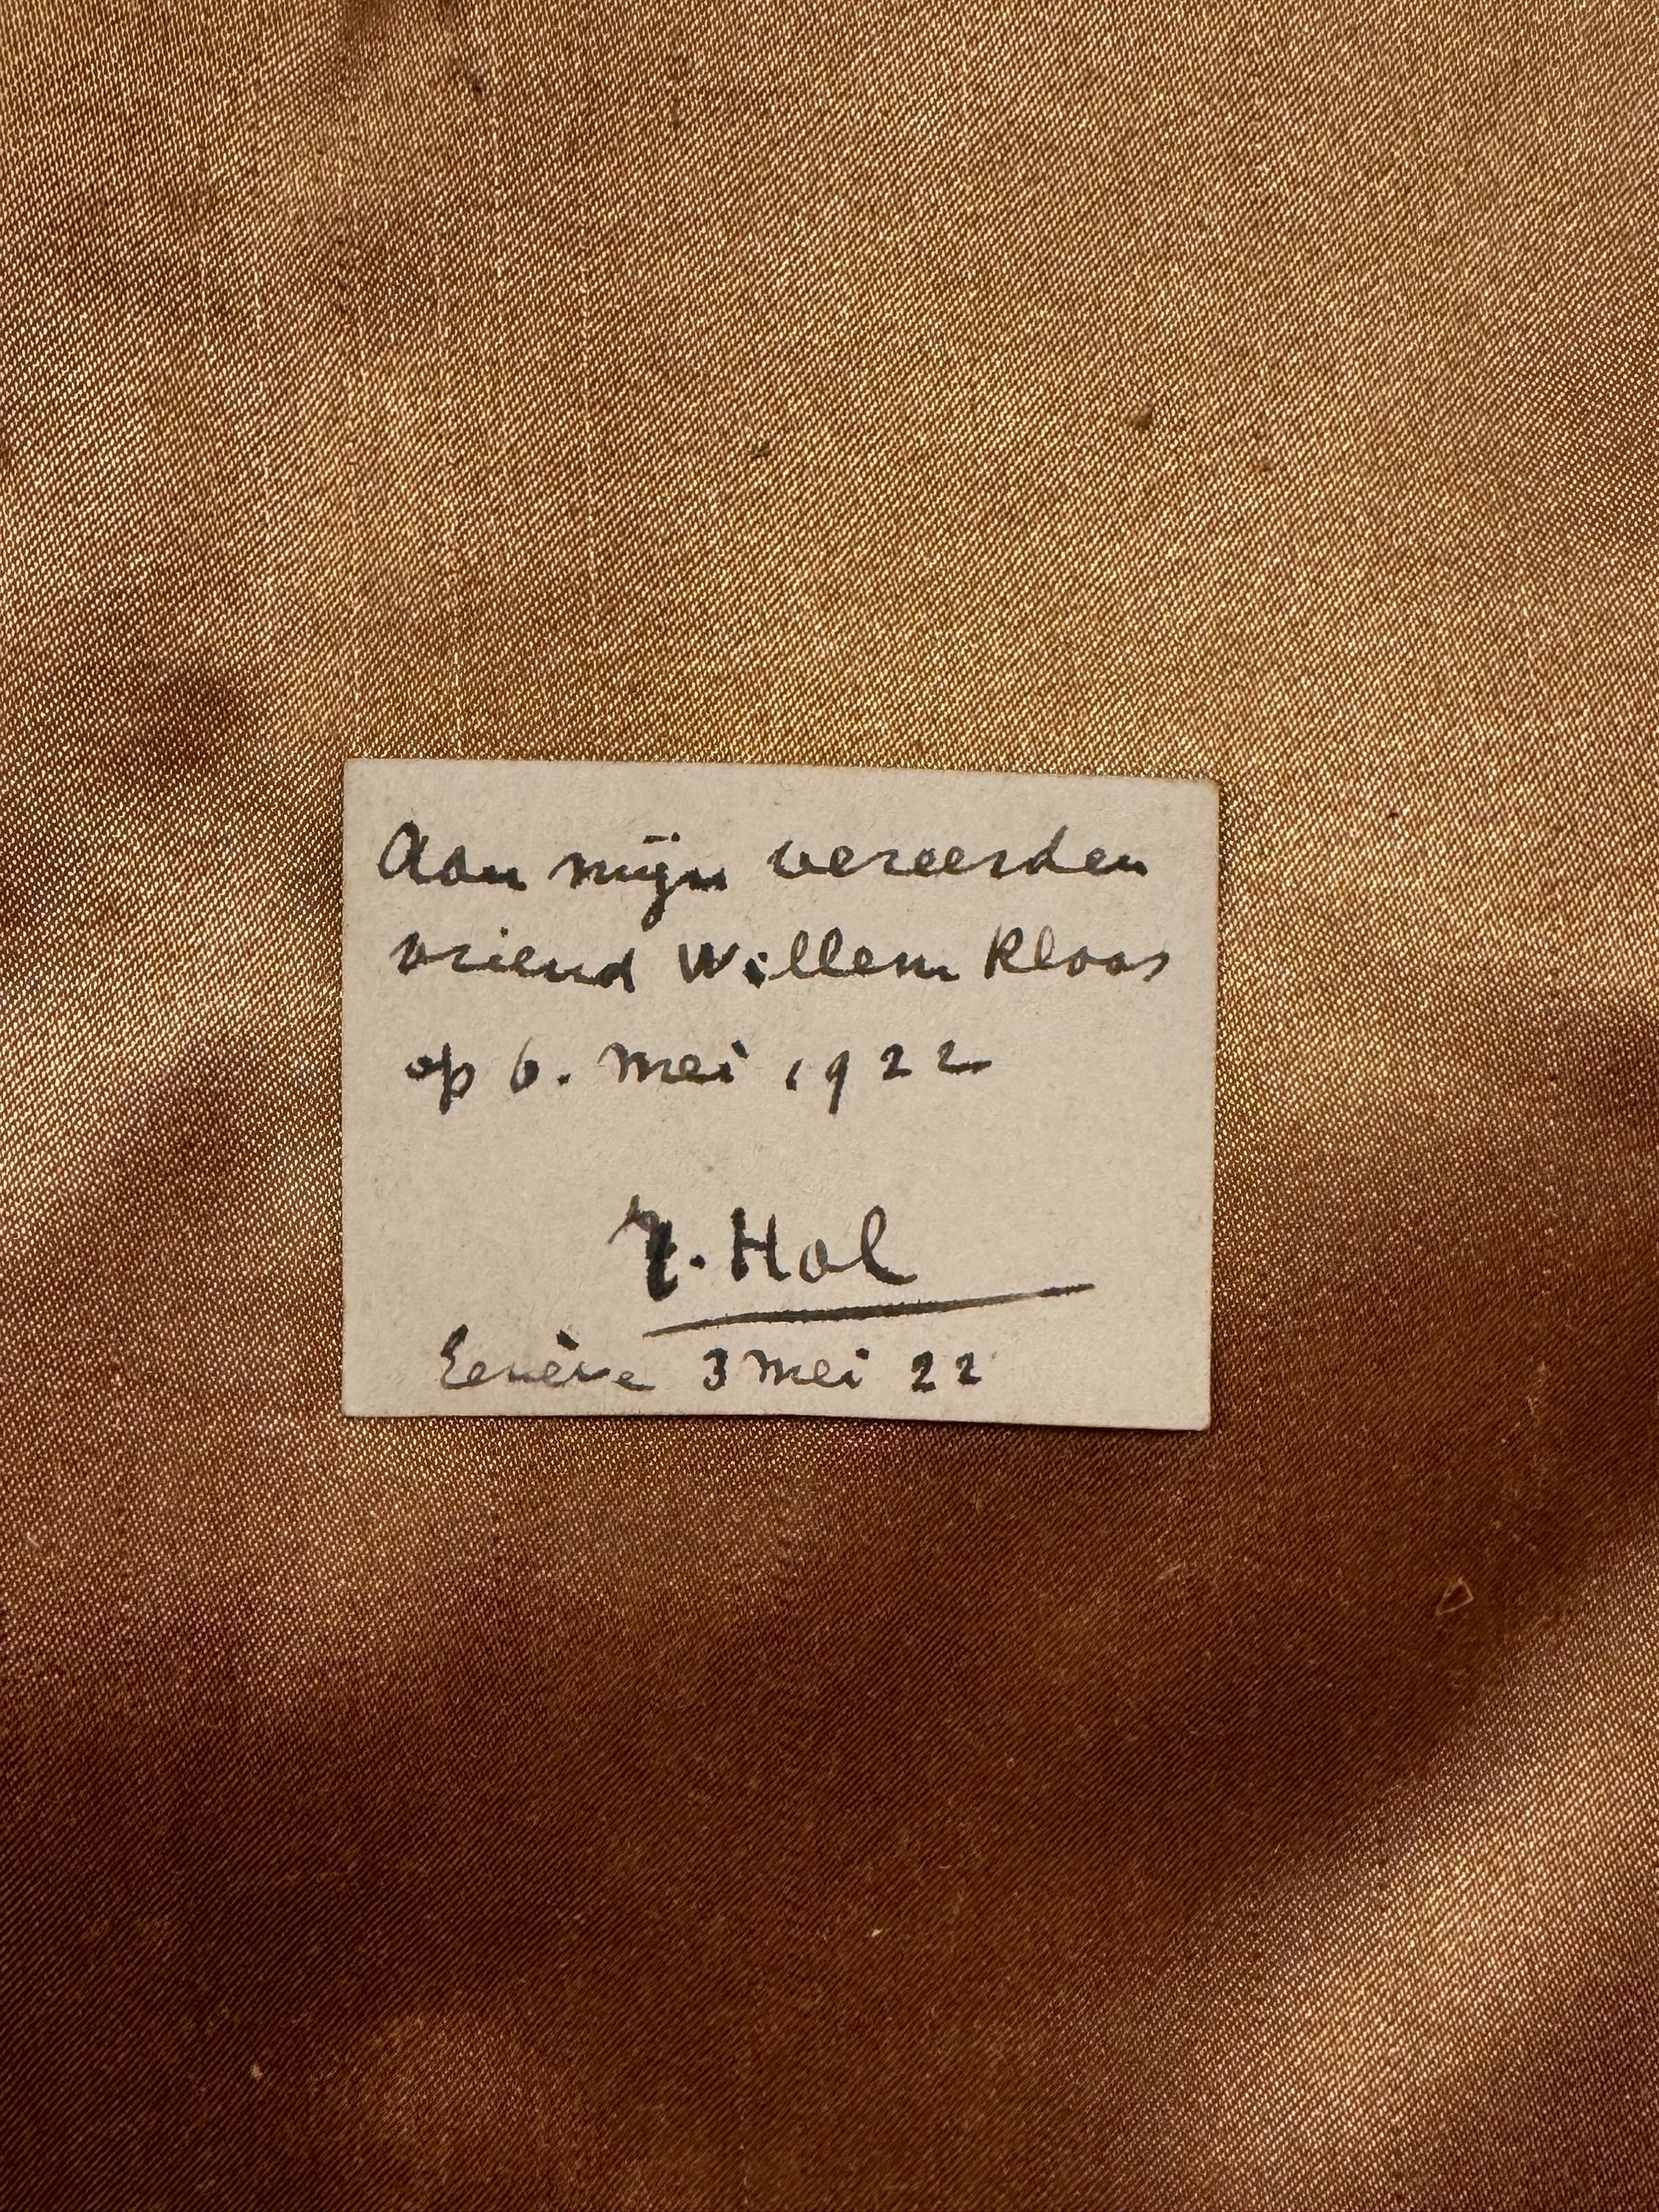 Aan mijn vereerden
vriend Willem Kloos
op 6. mei 1922
Hol
Genève 3 mei 22